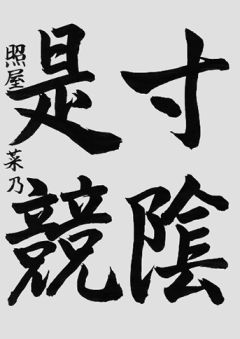 寸陰
是競
照屋菜乃